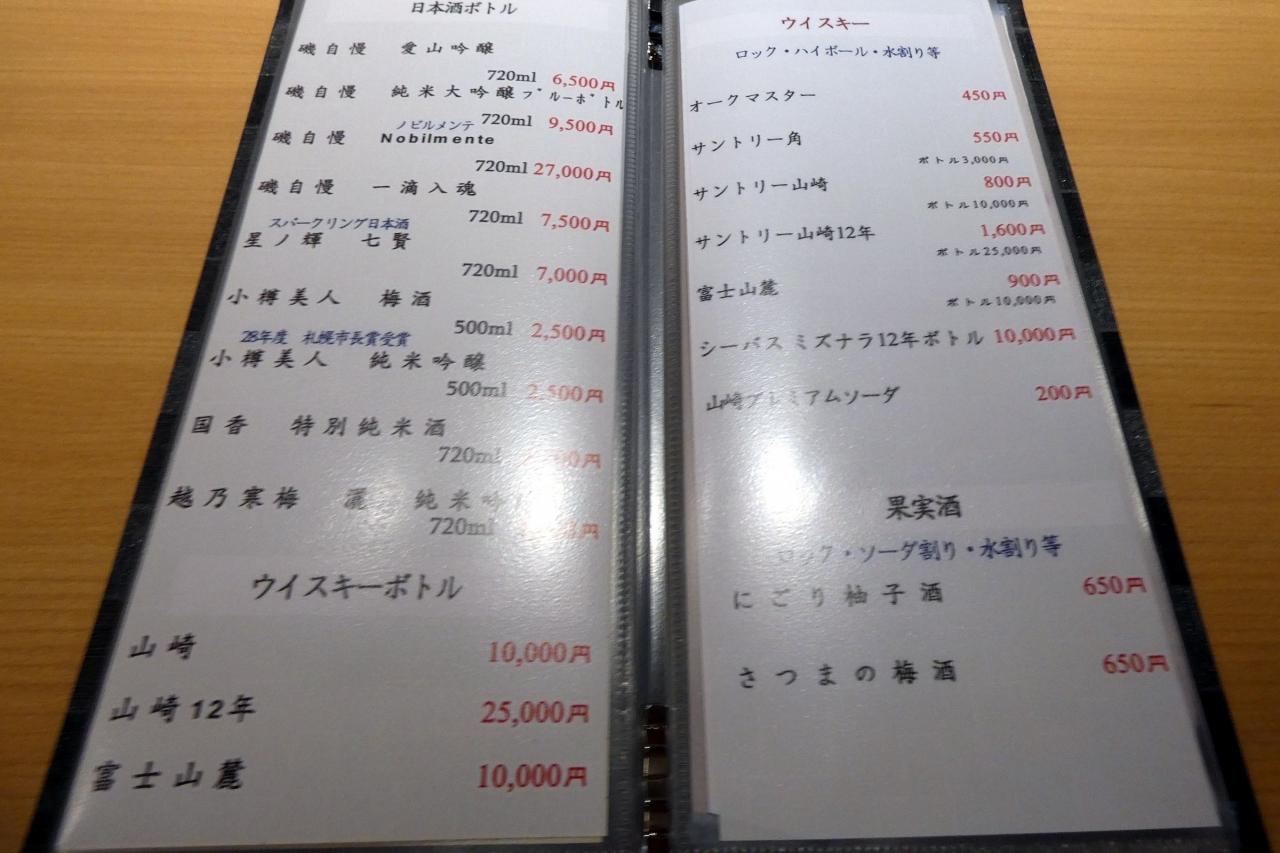 日本酒ボトル
磯自慢 愛山吟醸
720ml 6,500円
磯自慢 純米大吟醸ブルーボトル
720ml 9,500円
ノビルメンテ
磯自慢 Nobilmente
720ml 27,000円
磯自慢 一滴入魂
720ml 7,500円
スパークリング日本酒
星ノ輝 七賢
720ml 7,000円
小樽美人 梅酒
500ml 2,500円
28年度 札幌市長賞受賞
小樽美人 純米吟醸
500ml 2,500円
国香 特別純米酒
720ml
越乃寒梅 灑 純米吟
720ml
ウイスキーボトル
山崎 10,000円
山崎12年 25,000円
富士山麓 10,000円
ウイスキー
ロック・ハイボール・水割り等
オークマスター 450円
サントリー角 550円
ボトル3,000円
サントリー山崎 800円
ボトル10,000円
サントリー山崎12年 1,600円
ボトル25,000円
富士山麓 900円
ボトル10,000円
シーバス ミズナラ12年ボトル 10,000円
山崎プレミアムソーダ 200円
果実酒
ロック・ソーダ割り・水割り等
にごり柚子酒 650円
さつまの梅酒 650円